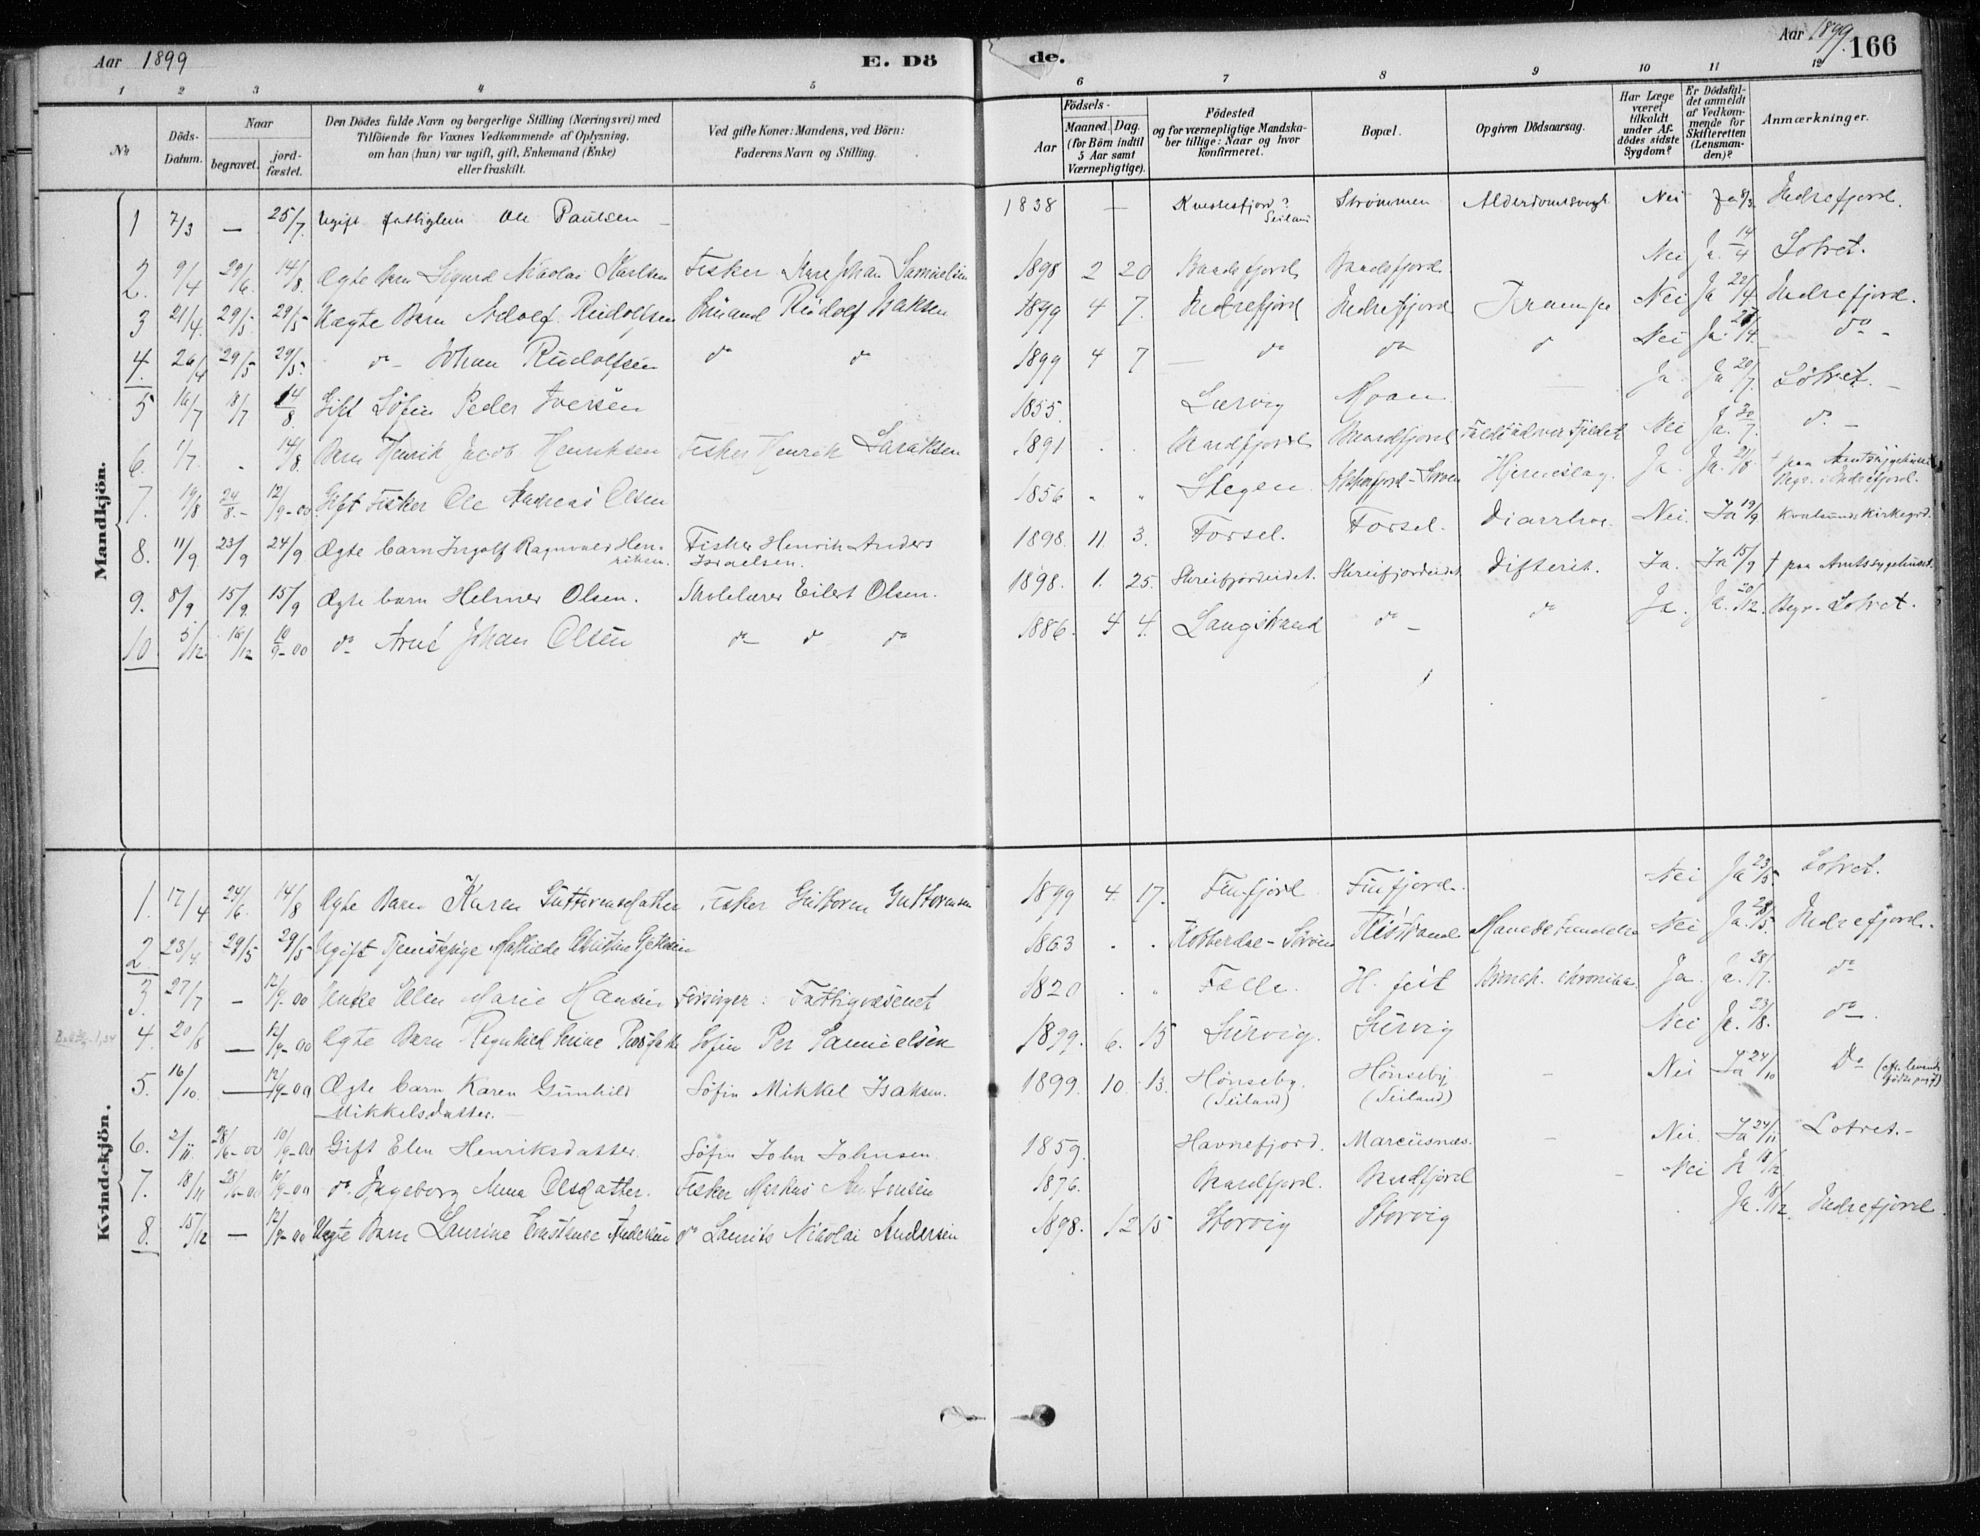 Aar 1899 E. Dö
de. Aar 1899. 166
1 2 3 4 5 6 7 8 9 10 11 12
No
Döds-Datum.
Naar
begravet. jord-fæstet.
Den Dödes fulde Navn og borgerlige Stilling (Næringsvei) med
Tilföiende for Voxnes Vedkommende af Oplysning,
om han (hun) var ugift, gift, Enkemand (Enke)
eller fraskilt.
Ved gifte Koner: Mandens, ved Börn:
Faderens Navn og Stilling.
Födsels-
Aar
Maaned. Dag.
(for Börn indtil
5 Aar samt
Værnepligtige).
Födested
og for værnepligtige Mandska-
ber tillige: Naar og hvor
konfirmeret.
Bopæl.
Opgiven Dödsaarsag.
Har Læge
været
tilkaldt
under Af-
dödes sidste
Sygdom?
Er Dödsfal-
det anmeldt
af Vedkom-
mende for
Skifteretten
(Lensman-
den)?
Anmærkninger.
Mandkjön.
1 7/3 — 25/7. Ugift fattiglem Ole Paulsen — 1838 — Seiland Strømmen Nei Ja 8/3. Indrefjord.
2. 9/4 29/6. 14/8. Ægte Barn Sigurd Nikolai Karlsen Fisker Karl Johan Samuelsen 1898 2 20 Baadsfjord Baadsfjord Nei Ja 14/4 Lotret.
3 21/4. 29/5 29/5 Uægte Barn Adolf Rudolfsen Rudolf Isaksen 1899 4 7. Indrefjord Indrefjord Krampe Nei Ja 22/4 Indrefjord.
4. 26/4 29/5 29/5. do — Johan Rudolfsen do do 1899 4 7 — do do do Nei Ja 27/4. do —
5 16/7 18/7 14/8. Gift Søfin Peder Iversen 1855. Lervig Moan — Ja. Ja 20/7. Lotret. —
6. 1/7. . 14/8. Barn Henrik Jacob Henriksen Fisker Henrik 1891 . . Nei Ja. 30/7. do —
7. 19/8 24/8. — 12/9-00 Gift Fisker Ole Andreas Olsen 1856 " " Stegen Hjerneslag. Ja. Ja. 21/8. † paa Amtssygehuset Begr. i Indrefjord.
8. 11/9. 23/9 24/9 Ægte barn Ingolf Ragnvald Hen-
riksen. Fisker Henrik Anders
Israelsen. 1898. 11 3. Forsøl. Forsøl. Diarrhoe. Nei. Ja 19/9 Kvalsunds Kirkegrd.
9. 8/9. 15/9. 15/9 Ægte barn Helmer Olsen. Skolelærer Eilert Olsen. 1898. 1. 25. Skreifjordeidet. Skreifjordeidet. Difterit. Ja. Ja 15/9 † paa Amtssygehuset.
10 5/12. 16/12 10/9-00 do Arne Johan Olsen do do do 1886. 4 4. Langstrand do — do Ja. Ja. 20/12. Begr. Lotret.
Kvindekjön.
1. 17/4 24/6. 14/8 Ægte Barn Karen Guttormsdatter Fisker Guttorm Guttormsen 1899 4. 17. Finfjord Finfjord. Nei Ja 23/5. Lotret.
2 23/4 29/5 29/5 Ugift Tjenistpige Mathilde 1863 . . Nei Ja. 28/5. Indrefjord.
3. 27/7 — 12/9-00 Enke Elen Marie Hansen Forsørger: Fattigvæsenet 1820 . " H. fest Bronch. chronica. Ja. Ja. 28/7. do
4. 20/8 — 12/9-00 Ægte Barn Ragnhild Søfin Per Samuelsen 1899. 6. 15 Survig. Survig Nei Ja. 23/8. do —.
5. 16/10. — 12/9-00 Ægte barn Karen Gunhild
Mikkelsdatter. — Søfin Mikkel Isaksen. 1899. 10. 13. Hønseby.
(Seiland) Hønseby.
(Seiland) — Nei Ja 24/10 Do
6. 2/11. 28/6-00 10/9-00 Gift Elen Henriksdatter. Søfin John Johnsen. 1859. Havnefjord. Marcusnæs. — Nei. Ja 24/11. Lotret. —
7. 18/11 28/6-00 10/9-00 do. Ingeborg Anna Olsdatter. Fisker Markus 1876. Nei Ja 18/12
8. 15/12 — 12/9-00 Uægte Barn Laurine Andersen do Laurits Nikolai Andersen 1898. 12 15 Storvig Storvig Ja. 18/12. Indrefjord.